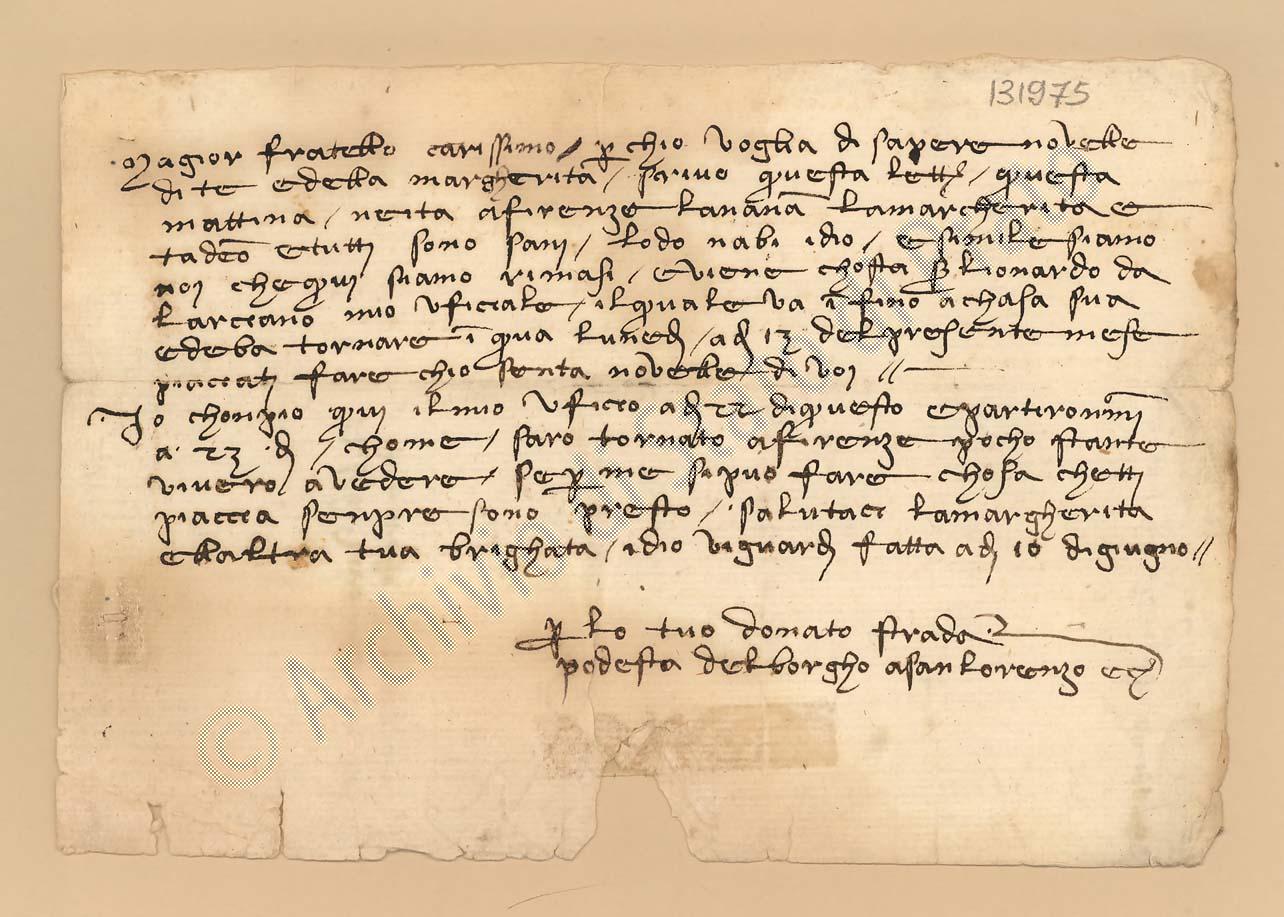 131975
Magior fratello carissimo / p chio voglia di sapere novelle
di te e della margherita / scrivo questa lettª / questa
mattina / neita a firenze la nanna la margherita e
tadeo e tutti sono sani / lodo nabi idio / e simile siamo
noi che qui siamo rimasi / e viene chosta lionardo da
larciano mio uficiale / il quale va ĩ fino a chasa sua
e deba tornare ĩ qua lunedi / a di 13 del presente mese
piacciati fare chio senta novelle di voi //
Io chonpio qui il mio uficio a di 22 di questo e partironmi
a 23 di / chome / saro tornato a firenze pocho stante
viverro a vedere / se p me si puo fare chosa chetti
piaccia senpre sono presto / salutaci la margherita
ellaltra tua brighata / idio vi guardi fatta a di 10 di giugno //
p lo tuo donato strada
podesta del borgho a san lorenzo ec
© Archivio